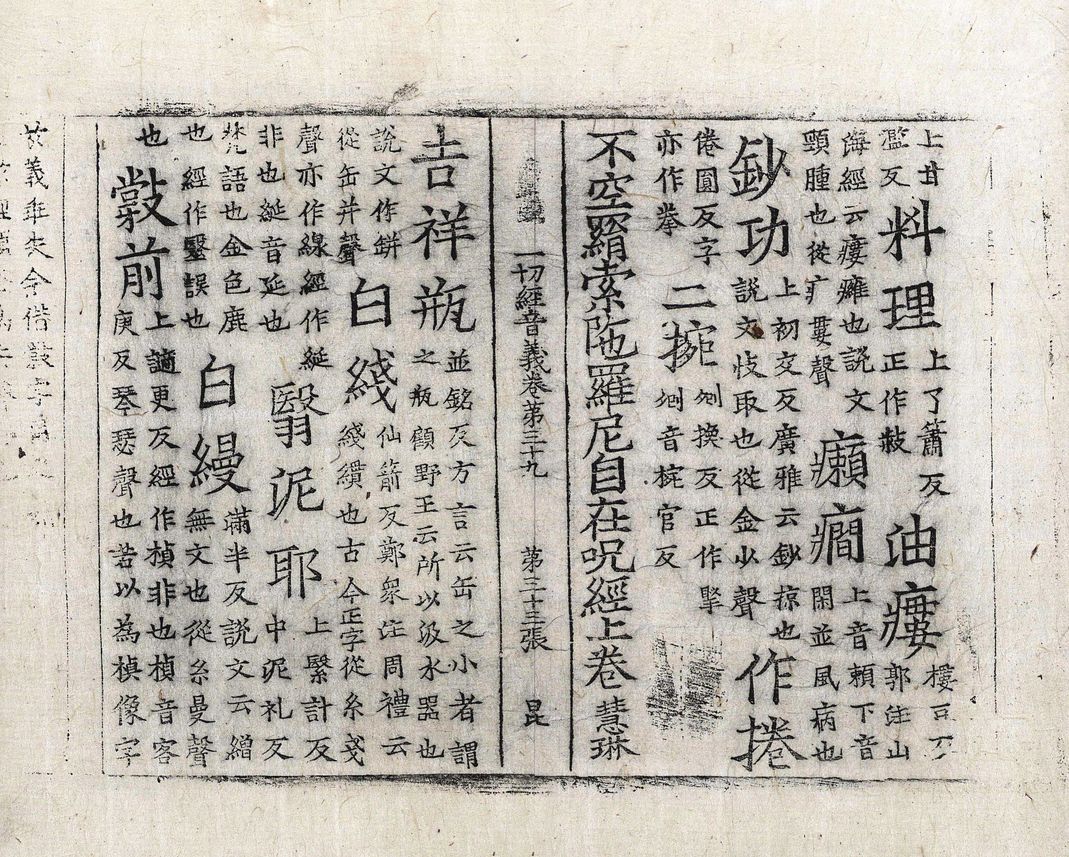 上甘
濫反
料理
上了簫反
正作敹
油瘻
樓豆反
郭注山
海經云瘻癰也説文
頸腫也從疒婁聲
癩癇
上音賴下音
閑並風病也
鈔功
上初交反廣雅云鈔掠也
説文忮取也從金少聲
作捲
倦圓反字
亦作拳
二捥
剜換反正作掔
剜音椀官反
不空羂索陁羅尼自在呪經上卷 慧琳
一切經音義卷第三十九 第三十三張 昆
吉祥瓶
並銘反方言云缶之小者謂
之瓶顧野王云所以汲水器也
説文作缾
從缶并聲
白綫
仙箭反鄭衆注周禮云
綫縷也古今正字從糸戔
聲亦作線經作綖
非也綖音延也
翳泥耶
上緊計反
中泥礼反
梵語也金色鹿
也經作瑿誤也
白縵
滿半反説文云繒
無文也從糸曼聲
也
前
上擿更反經作楨非也楨音客
庚反琴瑟聲也若以為楨像字
義
今借
字